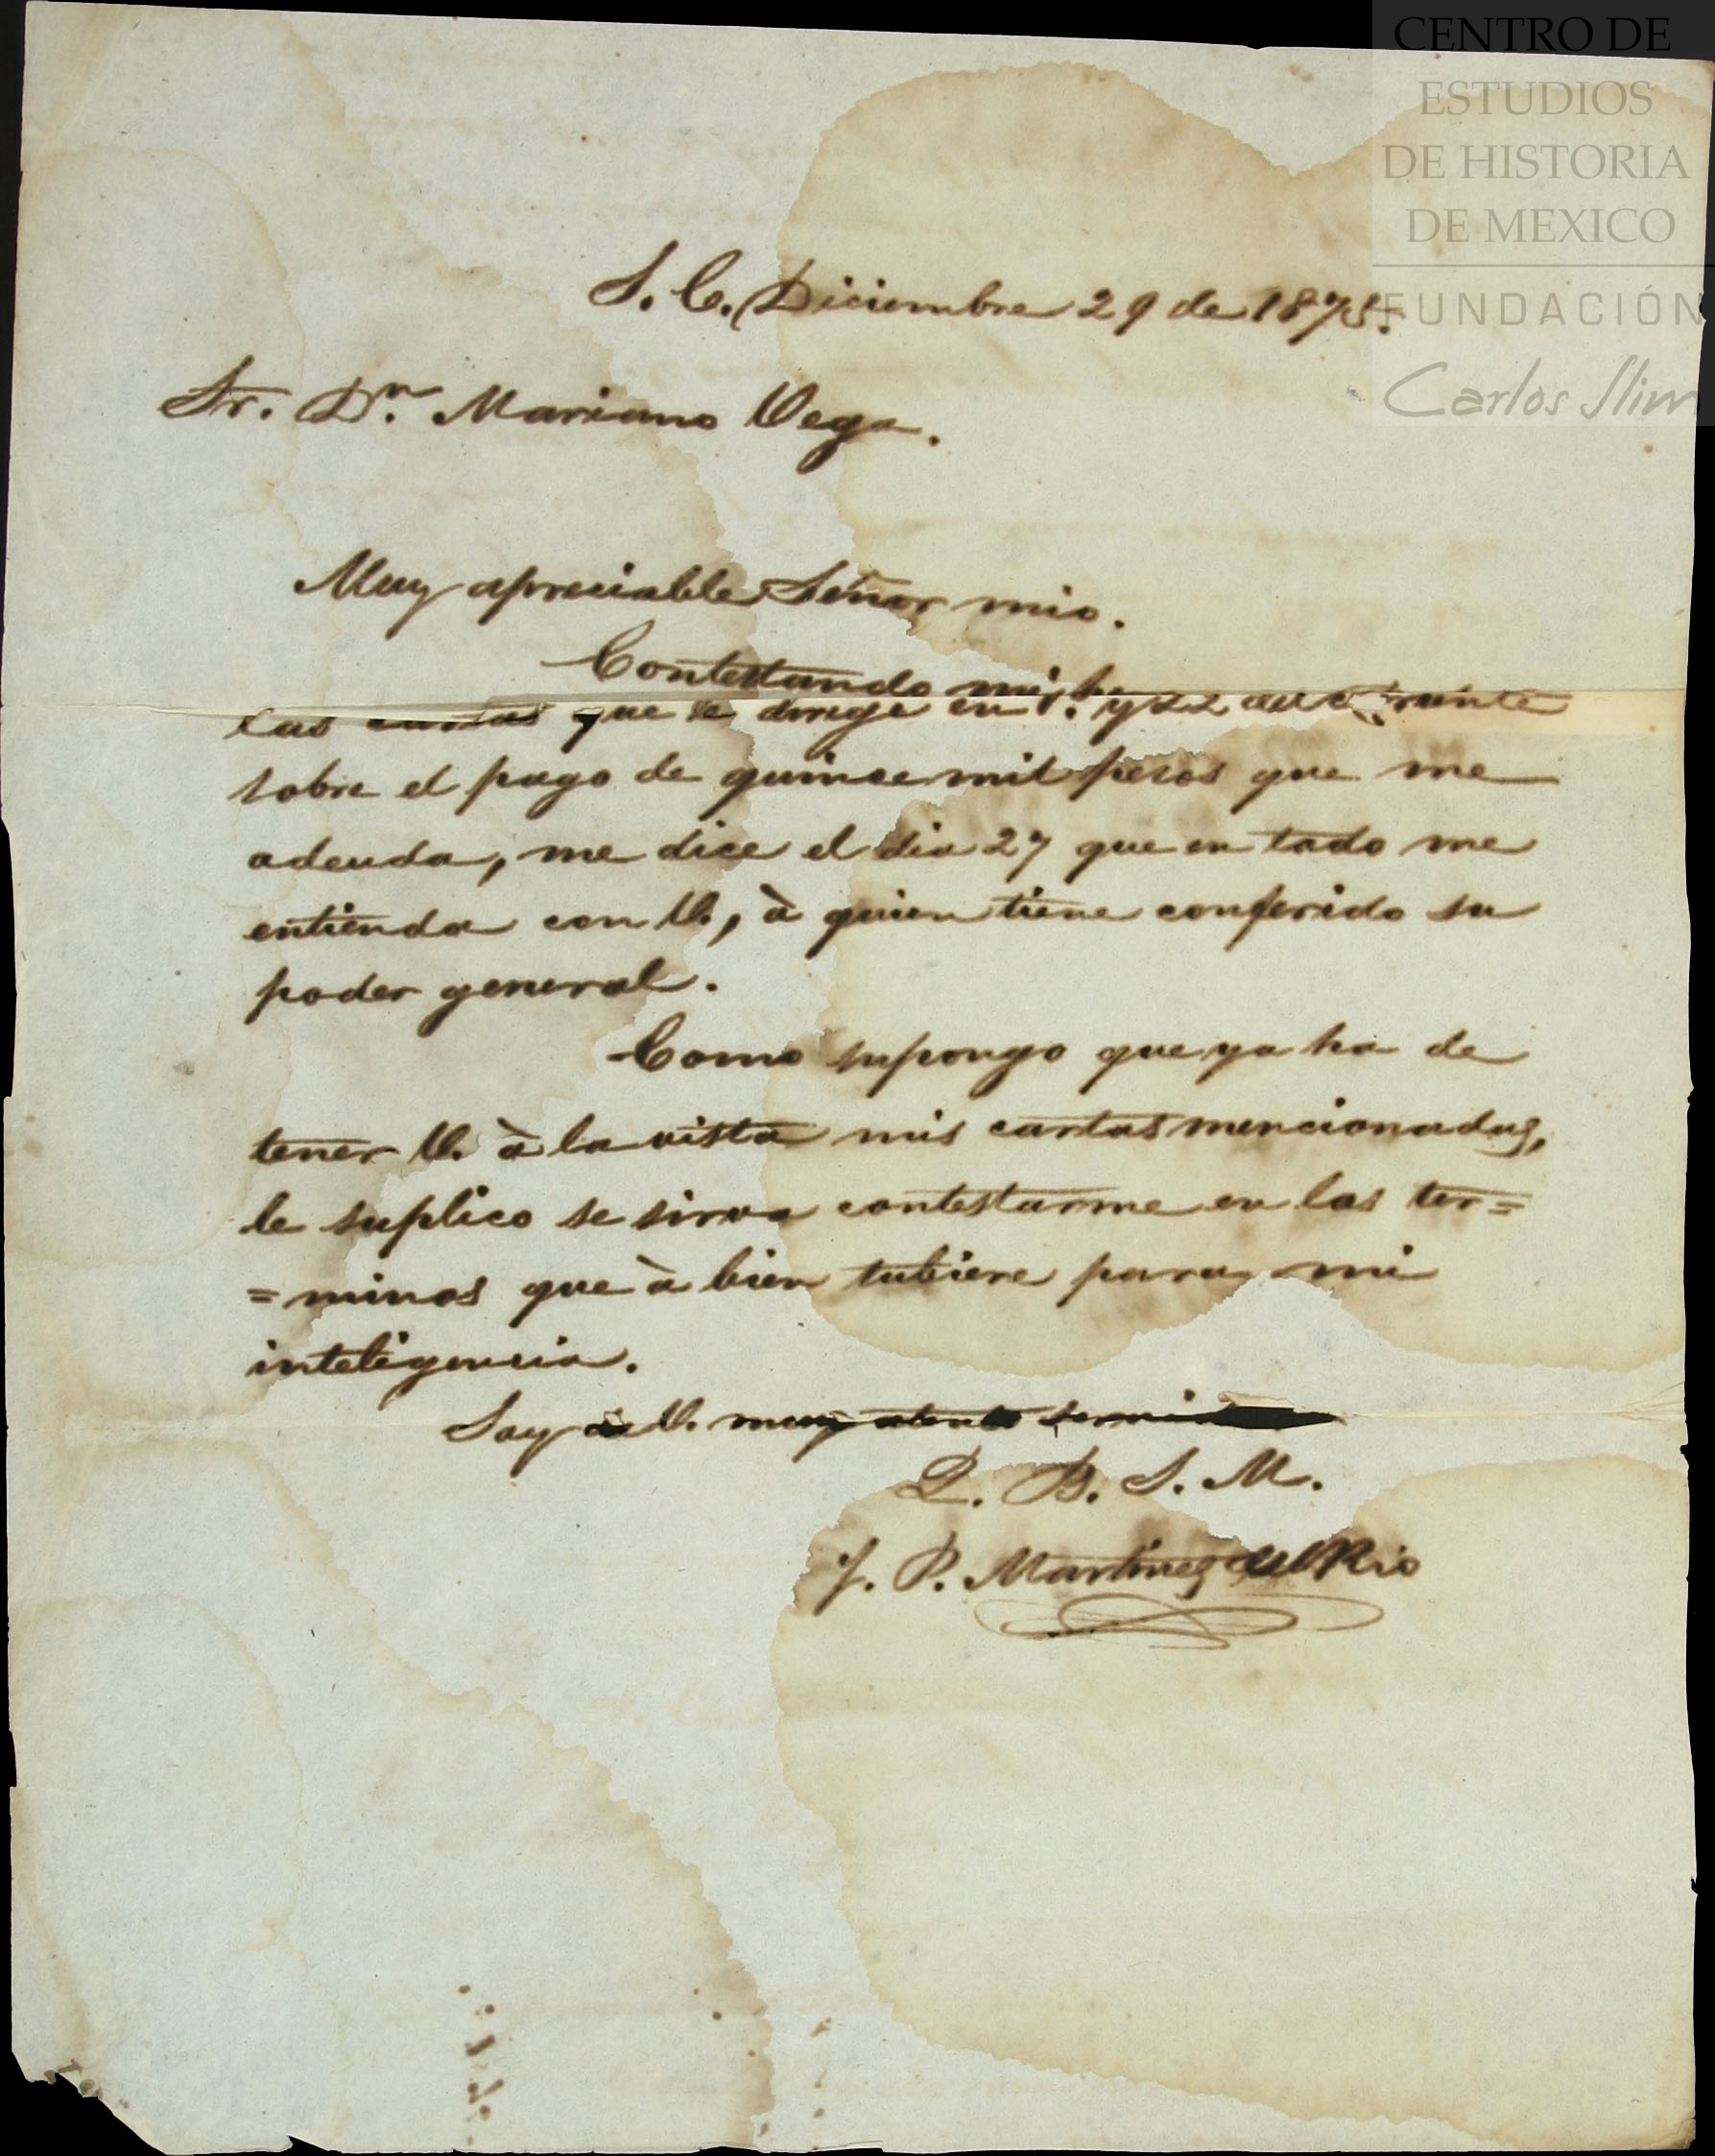 CENTRO DE
ESTUDIOS
DE HISTORIA
DE MEXICO
FUNDACIÓN
Carlos Slim
S. C. Diciembre 29 de 1875.
Sr. Dn. Mariano Vega.
Muy apreciable Señor mio.
Contestando
que le dirige en 1º. y 22
sobre el pago de quince mil pesos que me
adeuda, me dice el dia 27 que en todo me
entienda con U., à quien tiene conferido su
poder general.
Como supongo que ya ha de
tener U. à la vista mis cartas mencionadas,
le suplico se sirva contestarme en los ter=
=minos que à bien tubiere para mi
inteligencia.
Soy de U. muy atento
Q. B. S. M.
J. P. Martinez del Rio